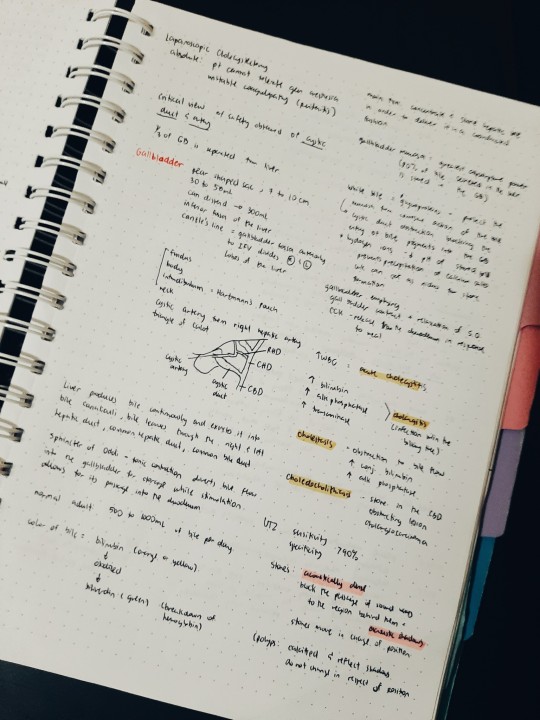 Laparoscopic Cholecystectomy
absolute: pt cannot tolerate gen anesthesia
critical view of safety obtained of cystic
duct & artery
1/3 of GB is separated from liver
Gallbladder
pear shaped sac, 7 to 10 cm
30 to 50ml
can distend → 300ml
inferior of the liver
cantlie's line =
to IVC divides R & L
lobes of the liver
fundus
body
infundibulum = Hartmann's Pouch
neck
cystic artery from right hepatic artery
triangle of calot
RHD
CHD
CBD
cystic
artery
cystic
duct
Liver produces bile continuously and excretes it into
bile canaliculi, bile leaves through the right & left
hepatic duct, common hepatic duct, common bile duct
Sphincter of Oddi = tonic contraction diverts bile flow
into the gallbladder for storage while stimulation
allows for its passage into the duodenum
normal adult: 500 to 1000mL of bile per day
color of bile = bilirubin (orange or yellow)
↓
oxidized
↓
biliverdin (green) (breakdown of
hemoglobin)
main fxn: concentrate & store hepatic bile
in order to deliver it in a coordinated
fashion
gallbladder mucosa: greatest absorptive power
is stored in the GB)
white bile
cystic duct obstruction
entry of bile pigments into the GB
prevents precipitation of calcium salts
formation
gallbladder emptying
gall bladder contract & relaxation of S.O
CCK - release from the duodenum in response
to meal
↑WBC = acute cholecystitis
↑ bilirubin
↑ alk phosphatase
↑ transaminase
cholangitis
(infection within the
biliary tree)
cholestasis = obstruction to bile flow
↑ conj. bilirubin
↑ alk phosphatase
Choledocholithiasis - stone in the CBD
obstructing lesion
cholangiocarcinoma
UTZ sensitivity
specificity >90%
Stones: acoustically dense
block the passage of sound waves
to the region behind them =
acoustic shadow
stones move in change of position
(polyps: calcified & reflect shadows
do not change in respect of position